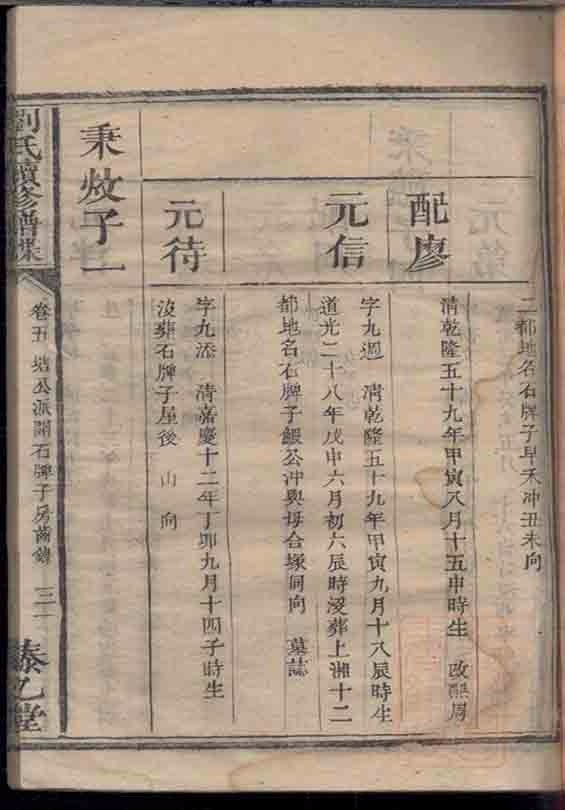 二都地名石牌子早禾冲丑未向
配廖
清乾隆五十九年甲寅八月十五申時生 改醮周
元信
字九週 清乾隆五十九年甲寅九月十八辰時生
道光二十八年戊申六月初六辰時沒葬上湘十二
都地名石牌子鍛公冲與母合塚同向 墓誌
元待
字九添 清嘉慶十二年丁卯九月十四子時生
沒葬石牌子屋後 山 向
秉敚子一
劉氏續修譜牒
卷五 公派開石牌子房齒錄
堂